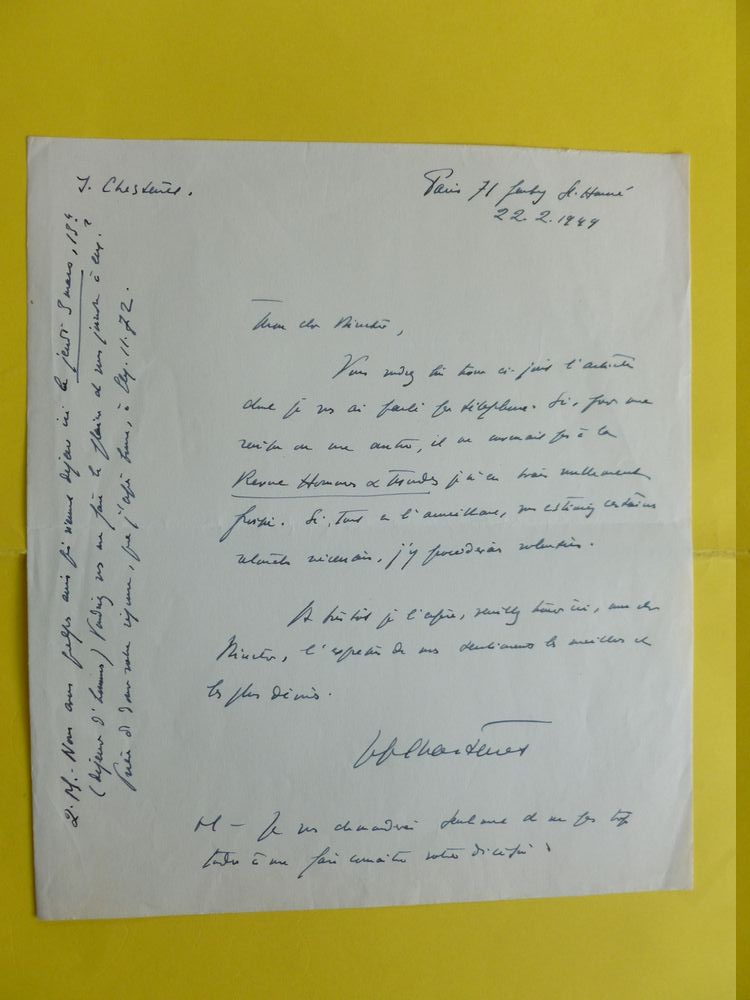 J. Chastenet.
Paris 71 faubg St. Honoré
22.2.1949
Mon cher Directeur,
Vous voudrez bien trouver ci-joint l'article
dont je vous ai parlé par téléphone. Si, pour une
raison ou une autre, il ne convenait pas à la
Revue Hommes & Mondes je n'en serais nullement
froissé. Si, tout en l'accueillant, vous estimiez certaines
retouches nécessaires, j'y procéderais volontiers.
A bientôt je l'espère, veuillez trouver ici, mon cher
Directeur, l'expression de mes sentiments les meilleurs et
les plus dévoués.
J. Chastenet
P.S. — Je vous demanderai seulement de ne pas trop
tarder à me faire connaître votre décision.
2. P.S. - Nous avons quelques amis qui viennent déjeuner ici le jeudi 3 mars, 13h
(déjeuner d'hommes) Voudrez-vous me faire le plaisir de vous joindre à eux?
de donner votre réponse, que j'espère bonne, à Ely. 11.72.